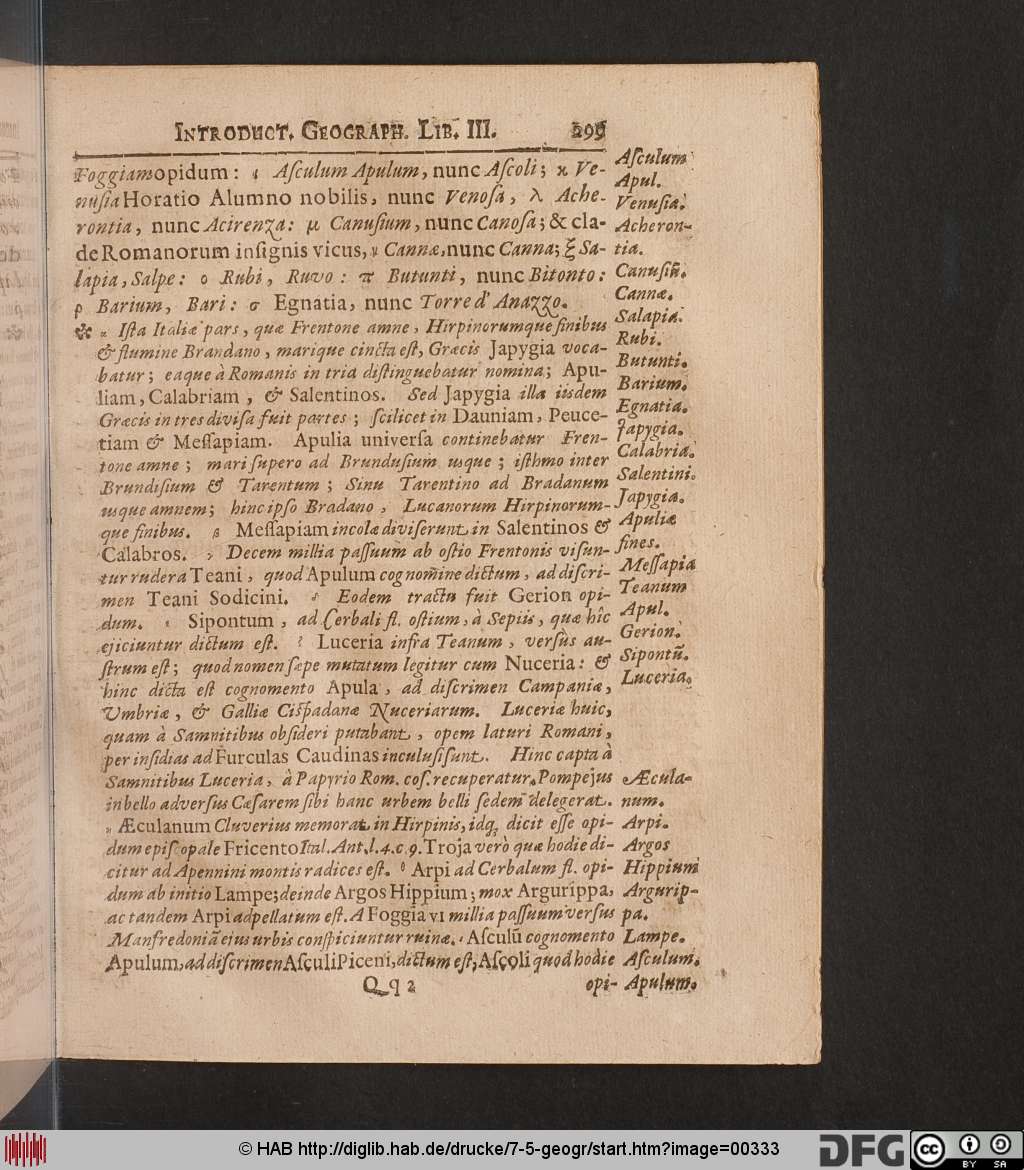 INTRODUCT. GEOGRAPH. LIB. III. 299
Foggiam opidum: ι Aſculum Apulum, nunc Aſcoli; κ Ve-
nuſia Horatio Alumno nobilis, nunc Venoſa, λ Ache-
rontia, nunc Acirenza: μ Canuſium, nunc Canoſa; & cla-
de Romanorum inſignis vicus, ν Cannæ, nunc Canna; ξ Sa-
lapia, Salpe: ο Rubi, Ruvo: π Butunti, nunc Bitonto:
ρ Barium, Bari: σ Egnatia, nunc Torre d' Anazzo.
✽ α Iſta Italiæ pars, quæ Frentone amne, Hirpinorumque finibus
& flumine Brandano, marique cincta eſt, Græcis Japygia voca-
batur; eaque à Romanis in tria diſtinguebatur nomina; Apu-
liam, Calabriam, & Salentinos. Sed Japygia illa iisdem
Græcis in tres diviſa fuit partes; ſcilicet in Dauniam, Peuce-
tiam & Meſſapiam. Apulia univerſa continebatur Fren-
tone amne; mari ſupero ad Brunduſium usque; iſthmo inter
Brundiſium & Tarentum; Sinu Tarentino ad Bradanum
usque amnem; hinc ipſo Bradano, Lucanorum Hirpinorum-
que finibus. β Meſſapiam incolæ diviſerunt in Salentinos &
Calabros. γ Decem millia paſſuum ab oſtio Frentonis viſun-
tur rudera Teani, quod Apulum cognom̃ine dictum, ad diſcri-
men Teani Sodicini. δ Eodem tractu fuit Gerion opi-
dum. ε Sipontum, ad Cerbali fl. oſtium, à Sepiis, quæ hîc
ejiciuntur dictum eſt. ζ Luceria infra Teanum, verſùs au-
ſtrum eſt; quod nomen ſæpe mutatum legitur cum Nuceria: &
hinc dicta eſt cognomento Apula, ad diſcrimen Campaniæ,
Umbriæ, & Galliæ Ciſpadanæ Nuceriarum. Luceriæ huic,
quam à Samnitibus obſideri putabant, opem laturi Romani,
per inſidias ad Furculas Caudinas incluſi ſunt. Hinc capta à
Samnitibus Luceria, à Papyrio Rom. coſ. recuperatur. Pompejus
in bello adverſus Cæſarem ſibi hanc urbem belli ſedem delegerat.
η Æculanum Cluverius memorat in Hirpinis, idq; dicit eſſe opi-
dum epiſcopale Fricento Ital. Ant. l. 4. c. 9. Troja verò quæ hodie di-
citur ad Apennini montis radices eſt. θ Arpi ad Cerbalum fl. opi-
dum ab initio Lampe; deinde Argos Hippium; mox Argurippa,
ac tandem Arpi adpellatum eſt. A Foggia VI millia paſſuum verſus
Manfredoniā ejus urbis conſpiciuntur ruinæ. ι Aſculū cognomento
Apulum, ad diſcrimen Aſculi Piceni, dictum eſt; Aſcoli quod hodie
Qq 2 opi-
Aſculum
Apul.
Venuſia.
Acheron-
tia.
Canuſiū.
Cannæ.
Salapia.
Rubi.
Butunti.
Barium.
Egnatia.
Japygia.
Calabria.
Salentini.
Japygia.
Apuliæ
fines.
Meſſapia
Teanum
Apul.
Gerion.
Sipontū.
Luceria.
Æcula-
num.
Arpi.
Argos
Hippium
Argurip-
pa.
Lampe.
Aſculum.
Apulum.
© HAB http://diglib.hab.de/drucke/7-5-geogr/start.htm?image=00333
DFG cc BY SA